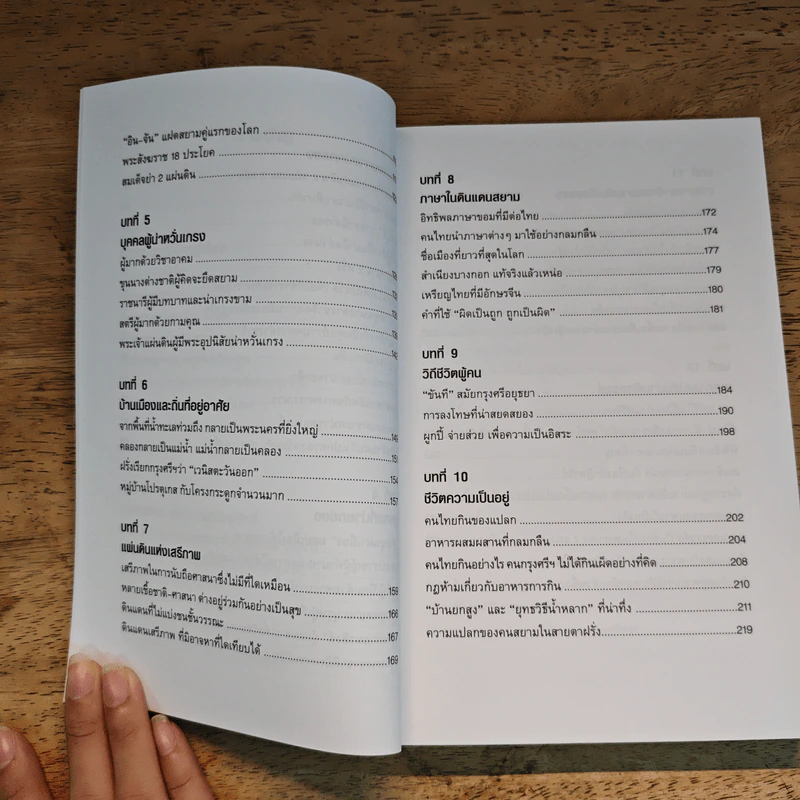 "อิน-จัน" แฝดสยามคู่แรกของโลก
พระสังฆราช 18 ประโยค
สมเด็จย่า 2 แผ่นดิน
บทที่ 5
บุคคลผู้น่าหวั่นเกรง
ผู้มากด้วยวิชาอาคม
ขุนนางต่างชาติผู้คิดจะยึดสยาม
ราชนารีผู้มีบทบาทและน่าเกรงขาม
สตรีผู้มากด้วยกามคุณ
พระเจ้าแผ่นดินผู้มีพระอุปนิสัยน่าหวั่นเกรง
บทที่ 6
บ้านเมืองและถิ่นที่อยู่อาศัย
จากพื้นที่น้ำทะเลท่วมถึง กลายเป็นพระนครที่ยิ่งใหญ่ 149
คลองกลายเป็นแม่น้ำ แม่น้ำกลายเป็นคลอง 151
ฝรั่งเรียกกรุงศรีฯว่า "เวนิสตะวันออก" 154
หมู่บ้านโปรตุเกส กับโครงกระดูกจำนวนมาก 157
บทที่ 7
แผ่นดินแห่งเสรีภาพ
เสรีภาพในการนับถือศาสนาซึ่งไม่มีที่ใดเหมือน 159
หลายเชื้อชาติ-ศาสนา ต่างอยู่ร่วมกันอย่างเป็นสุข 166
ดินแดนที่ไม่แบ่งชนชั้นวรรณะ 167
ดินแดนเสรีภาพ ที่มิอาจหาที่ใดเทียบได้ 169
บทที่ 8
ภาษาในดินแดนสยาม
อิทธิพลภาษาขอมที่มีต่อไทย 172
คนไทยนำภาษาต่างๆ มาใช้อย่างกลมกลืน 174
ชื่อเมืองที่ยาวที่สุดในโลก 177
สำเนียงบางกอก แท้จริงแล้วเหน่อ 179
เหรียญไทยที่มีอักษรจีน 180
คำที่ใช้ "ผิดเป็นถูก ถูกเป็นผิด" 181
บทที่ 9
วิถีชีวิตผู้คน
"ขันที" สมัยกรุงศรีอยุธยา 184
การลงโทษที่น่าสยดสยอง 190
ผูกปี้ จ่ายส่วย เพื่อความเป็นอิสระ 198
บทที่ 10
ชีวิตความเป็นอยู่
คนไทยกินของแปลก 202
อาหารผสมผสานที่กลมกลืน 204
คนไทยกินอย่างไร คนกรุงศรีฯ ไม่ได้กินเผ็ดอย่างที่คิด 208
กฎห้ามเกี่ยวกับอาหารการกิน 210
"บ้านยกสูง" และ "ยุทธวิธีน้ำหลาก" ที่น่าทึ่ง 211
ความแปลกของคนสยามในสายตาฝรั่ง 219